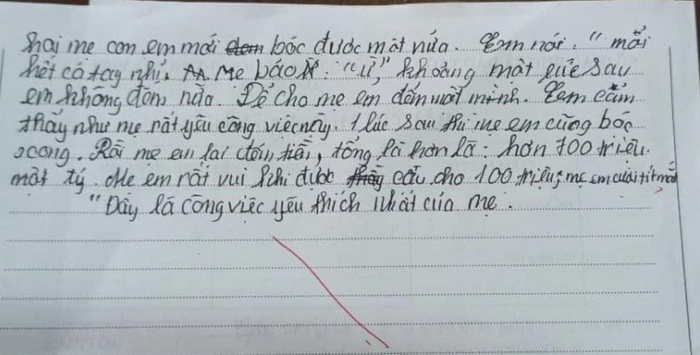 hai mẹ con em mới đem bóc được một nửa. Em nói: "mỏi
hết cả tay nhỉ. Mẹ bảo: "ừ," khoảng một lúc sau
em không đếm nữa. Để cho mẹ em đếm một mình. Em cảm
thấy như mẹ rất yêu công việc này. 1 lúc sau thì mẹ em cũng bóc
xong. Rồi mẹ em lại đếm tiền, tổng là hơn là: hơn 700 triệu
một tý. Mẹ em rất vui khi được thấy cầu cho 100 triệu, mẹ em cười tít mắt
"Đây là công việc yêu thích nhất của mẹ.